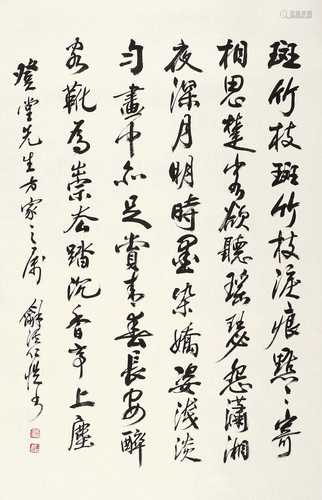 斑竹枝斑竹枝淚痕點々寄
相思楚客欲聽瑤瑟怨瀟湘
夜深月明時墨染嬌姿淺淡
勻畫中亦足賞青春長安醉
客靴為祟去踏沉香亭上塵
堂先生方家之属 龢溪仁愷书